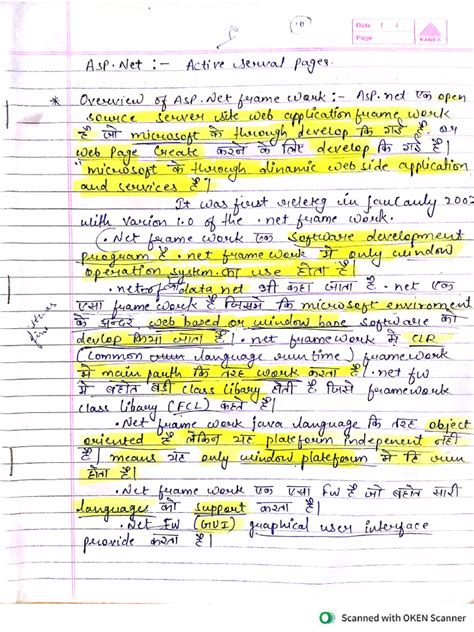 Date
Page
Asp.Net :- Active serval pages.
* Overview of Asp.Net frame work :- Asp.net एक open
source server site web application frame work
है जो microsoft के through develop कि गई है, or
web Page create करने के लिए develop कि गई है।
microsoft के through dinamic web side application
and services है।
It was first releleg in 2002
with varion 1.0 of the .net frame work.
.Net frame work एक software development
program है .net frame work में only window
operation system का use होता है।
data net भी कहा जाता है. net एक
एसा frame work है जिसमे कि microsoft enviroment
के अन्दर web based or window bane software को
devlop किया जाता है। .net frame work में CLR
(common language run time) framework
में main parth कि तरह work करता है। .net fw
में बहोत बडी class libary होती है जिसे framework
class libary (FCL) कहते है।
.Net frame work java language कि तरह object
oriented है लेकिन यह plateform indepenent नही
है। means यह only window plateform में हि run
होता है।
.Net frame work एक एसा fw है जो बहोत सारी
languages को support करता है।
.Net FW (GUI) graphical user interface
provide करता है।
Scanned with OKEN Scanner